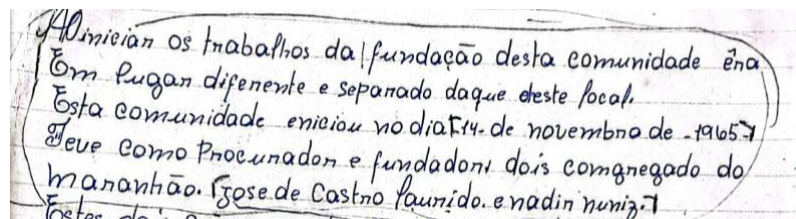 Alinician os trabalhos da fundação desta comunidade êna
Em lugan difenente e sepanado daque deste local.
Esta comunidade eniciou no dia 14. de novembno de - 1965
Teve como Procunadon e fundadoni dois comgnegado do
mananhão. Jose de Castno Launido. e nadin nuniz.
Estes dois